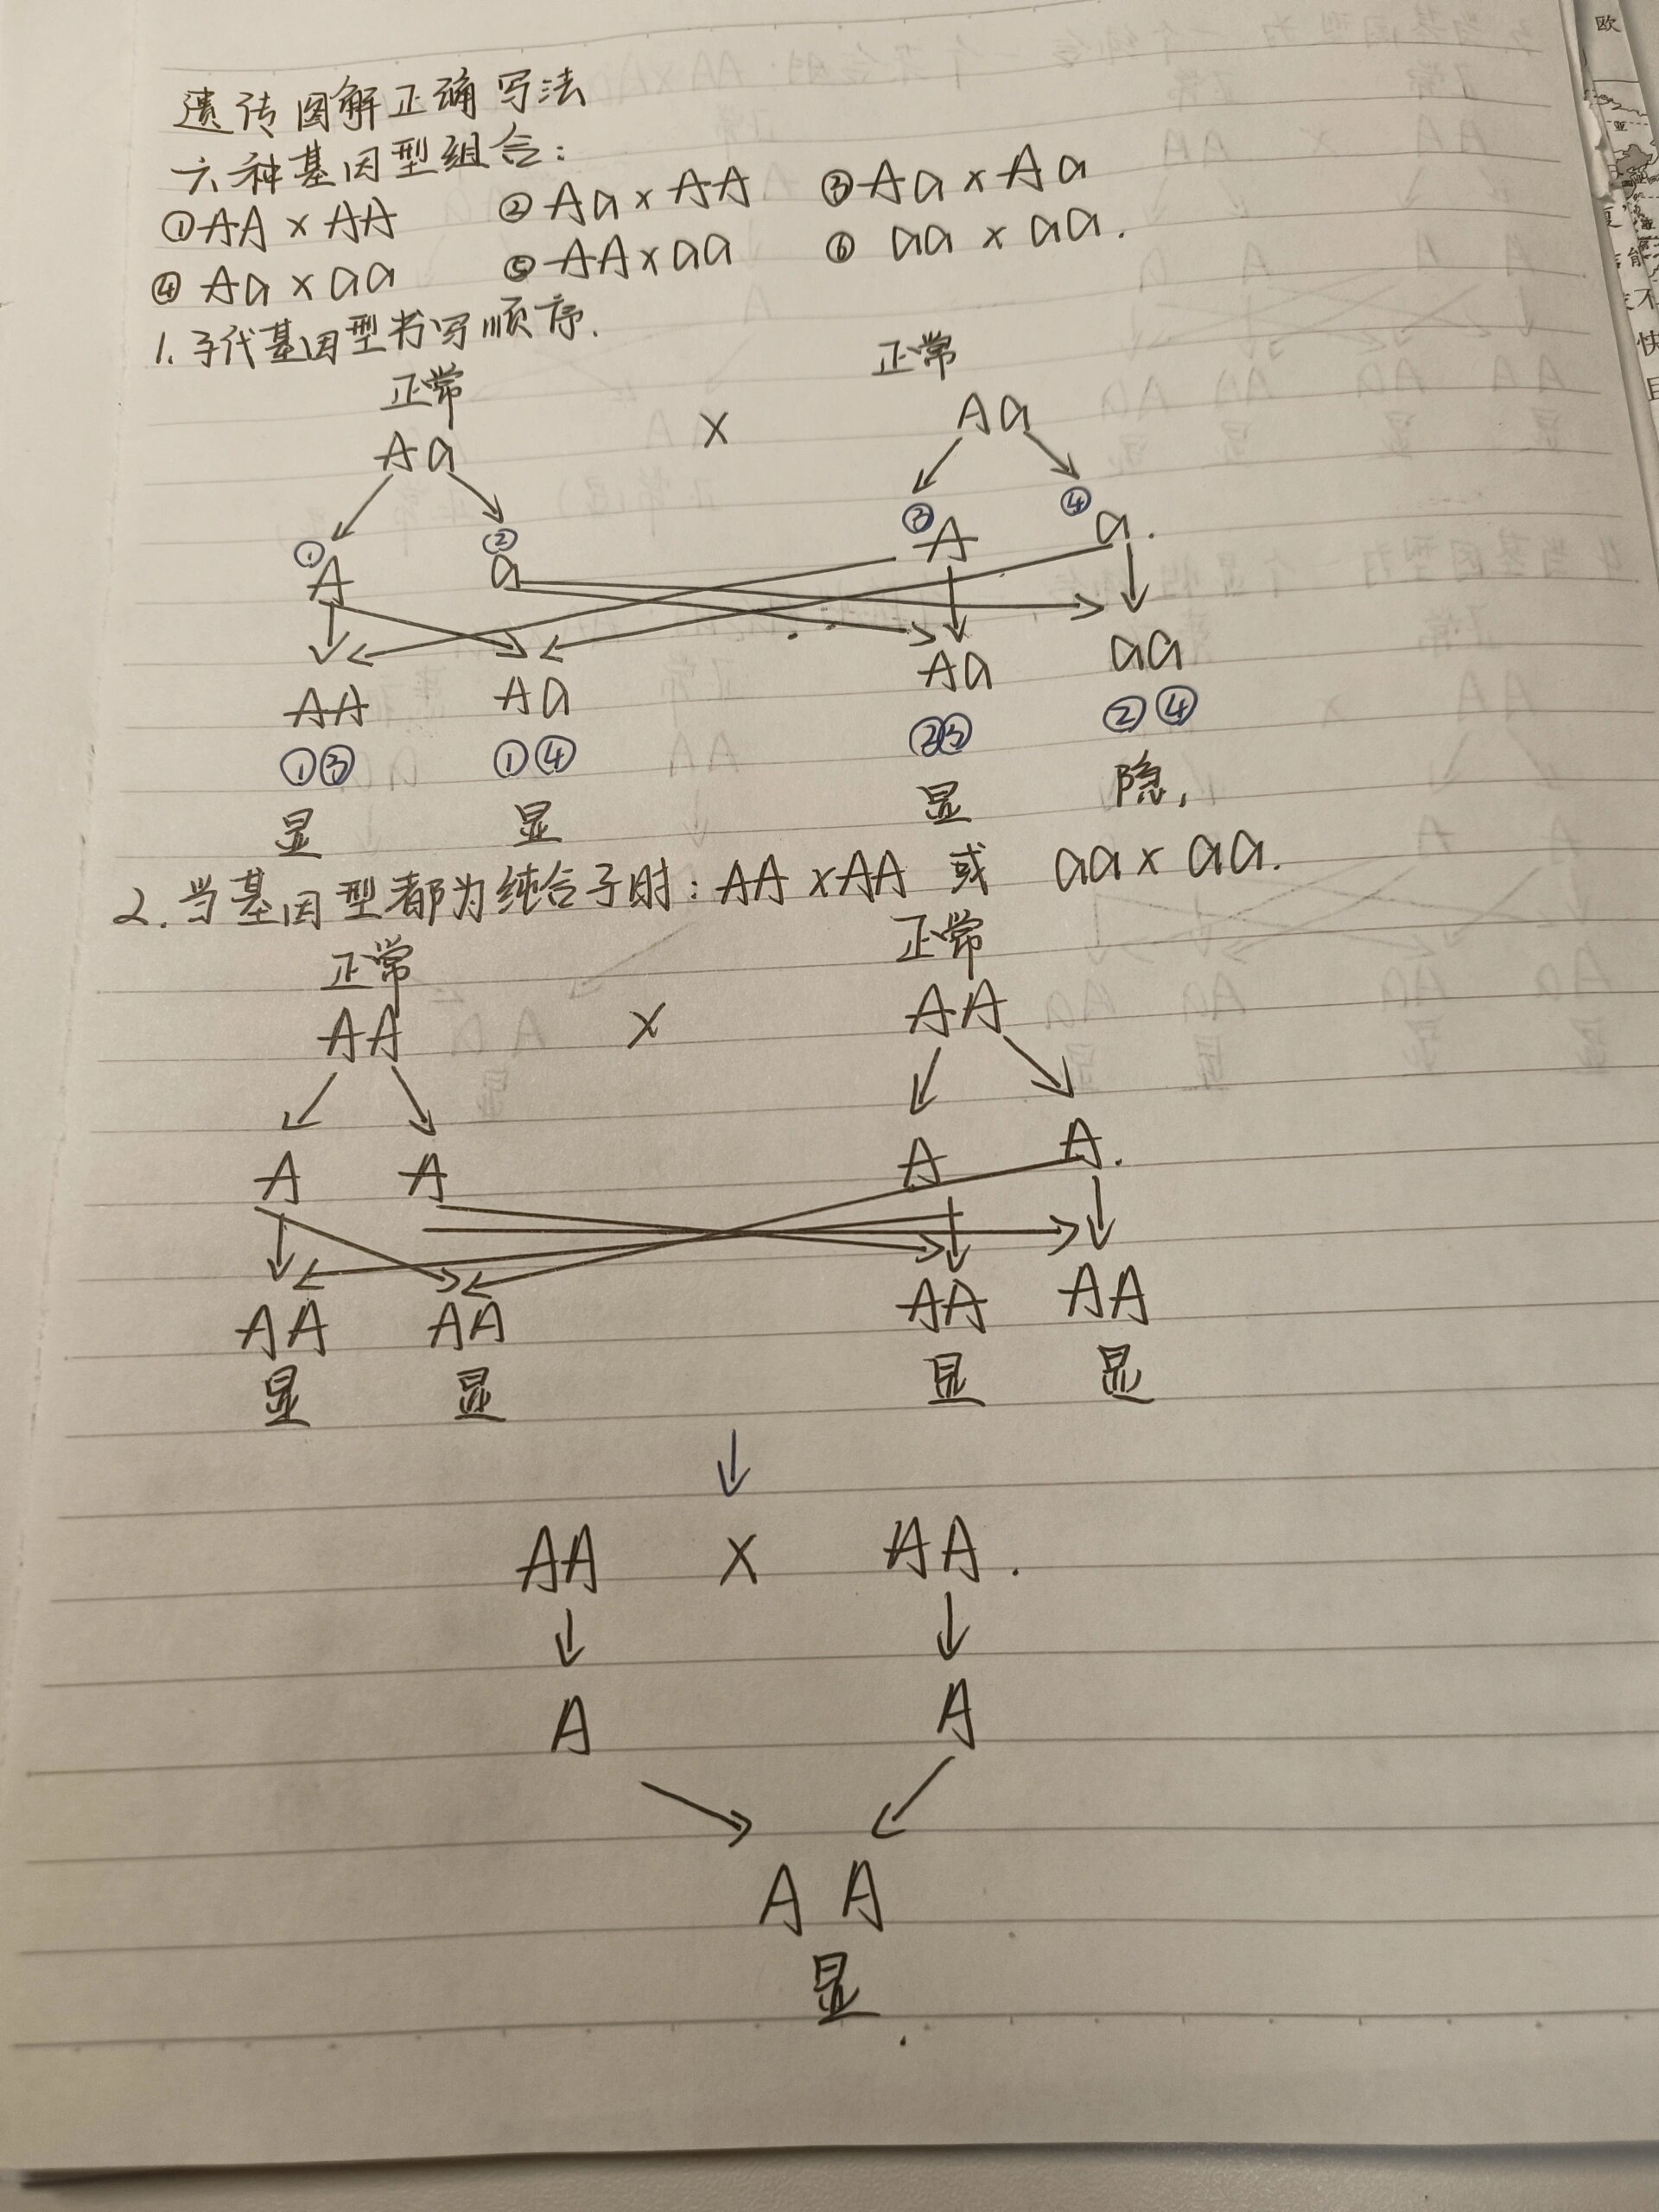 遗传图解正确写法
六种基因型组合：
①AA×AA ②Aa×AA ③Aa×Aa
④Aa×aa ⑤AA×aa ⑥aa×aa.
1.子代基因型书写顺序.
正常 正常
Aa × Aa
① ② ③ ④
A a A a.
AA Aa Aa aa
①③ ①④ ②③ ②④
显 显 显 隐,
2.当基因型都为纯合子时：AA×AA 或 aa×aa.
正常 正常
AA × AA
A A A A.
AA AA AA AA
显 显 显 显
AA × AA.
A A
AA
显
欧
能
快